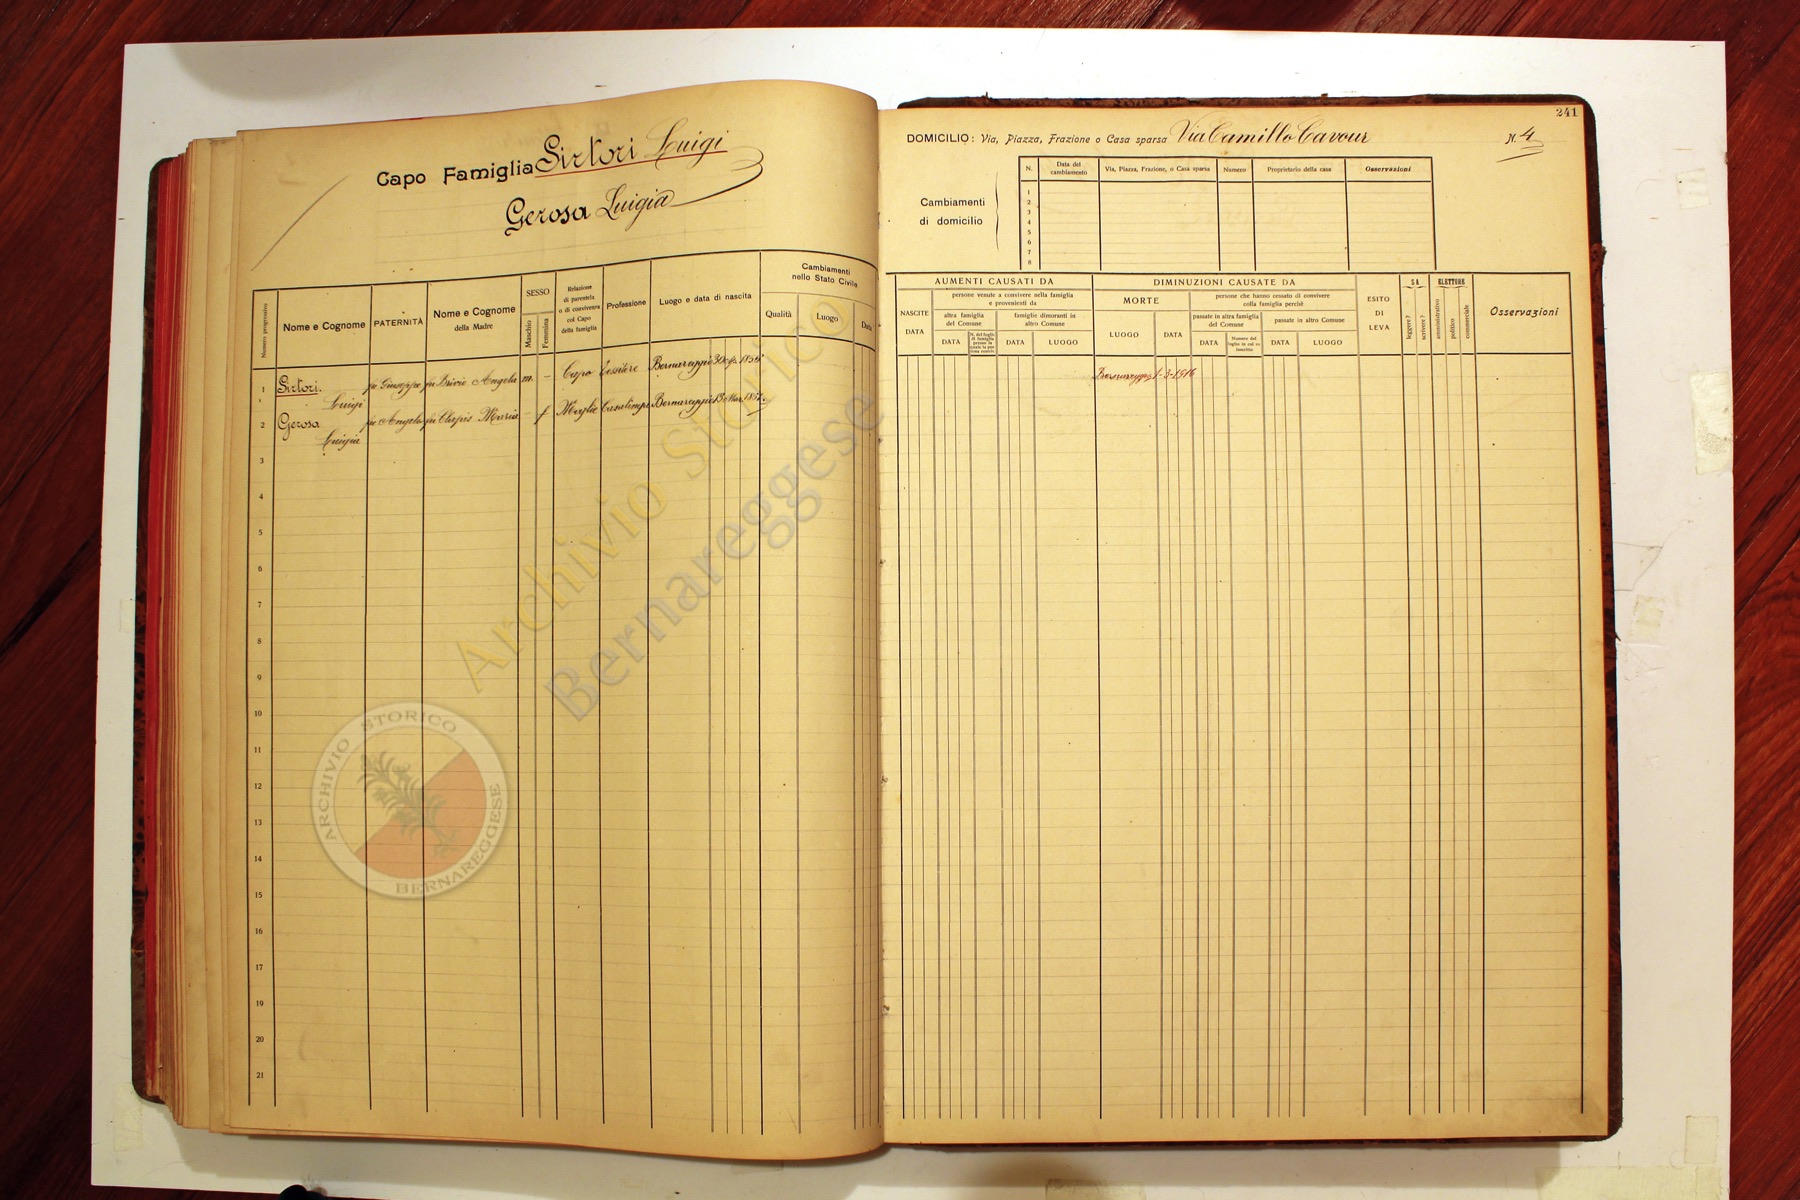 Capo Famiglia Sirtori Luigi
Gerosa Luigia
Numero progressivo
Nome e Cognome
PATERNITÀ
Nome e Cognome
della Madre
SESSO
Maschio
Femmina
Relazione
di parentela
o di convivenza
col Capo
della famiglia
Professione
Luogo e data di nascita
Cambiamenti
nello Stato Civile
Qualità
Luogo
Data
1 Sirtori fu Giuseppe fu Brivio Angela m. — Capo Bernareggio
Luigi
2 Gerosa fu Angelo fu Maria — f Moglie Casalinga Bernareggio 13 Mar. 1857.
Luigia
3
4
5
6
7
8
9
10
11
12
13
14
15
16
17
19
20
21
Archivio Storico
Bernareggese
ARCHIVIO STORICO
BERNAREGGESE
241
DOMICILIO: Via, Piazza, Frazione o Casa sparsa Via Camillo Cavour N. 4
Cambiamenti
di domicilio
N.
Data del
cambiamento
Via, Piazza, Frazione, o Casa sparsa
Numero
Proprietario della casa
Osservazioni
1
2
3
4
5
6
7
8
AUMENTI CAUSATI DA
NASCITE
DATA
persone venute a convivere nella famiglia
e provenienti da
altra famiglia
del Comune
DATA
famiglie dimoranti in
altro Comune
DATA
LUOGO
DIMINUZIONI CAUSATE DA
MORTE
LUOGO
DATA
persone che hanno cessato di convivere
colla famiglia perchè
passate in altra famiglia
del Comune
DATA
Numero del
foglio in cui si
inscritto
passate in altro Comune
DATA
LUOGO
ESITO
DI
LEVA
SA
leggere?
scrivere?
ELETTORE
amministrativo
politico
commerciale
Osservazioni
Bernareggio 1-3-1916